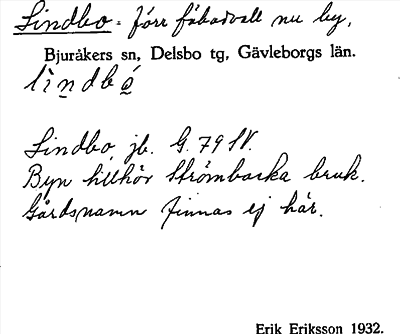 Lindbo. förr fäbodvall nu by.
Bjuråkers sn, Delsbo tg, Gävleborgs län.
lìndbó
Lindbo jb. G. 79 IV.
Byn tillhör Strömbacka bruk.
Gårdsnamn finnas ej här.
Erik Eriksson 1932.